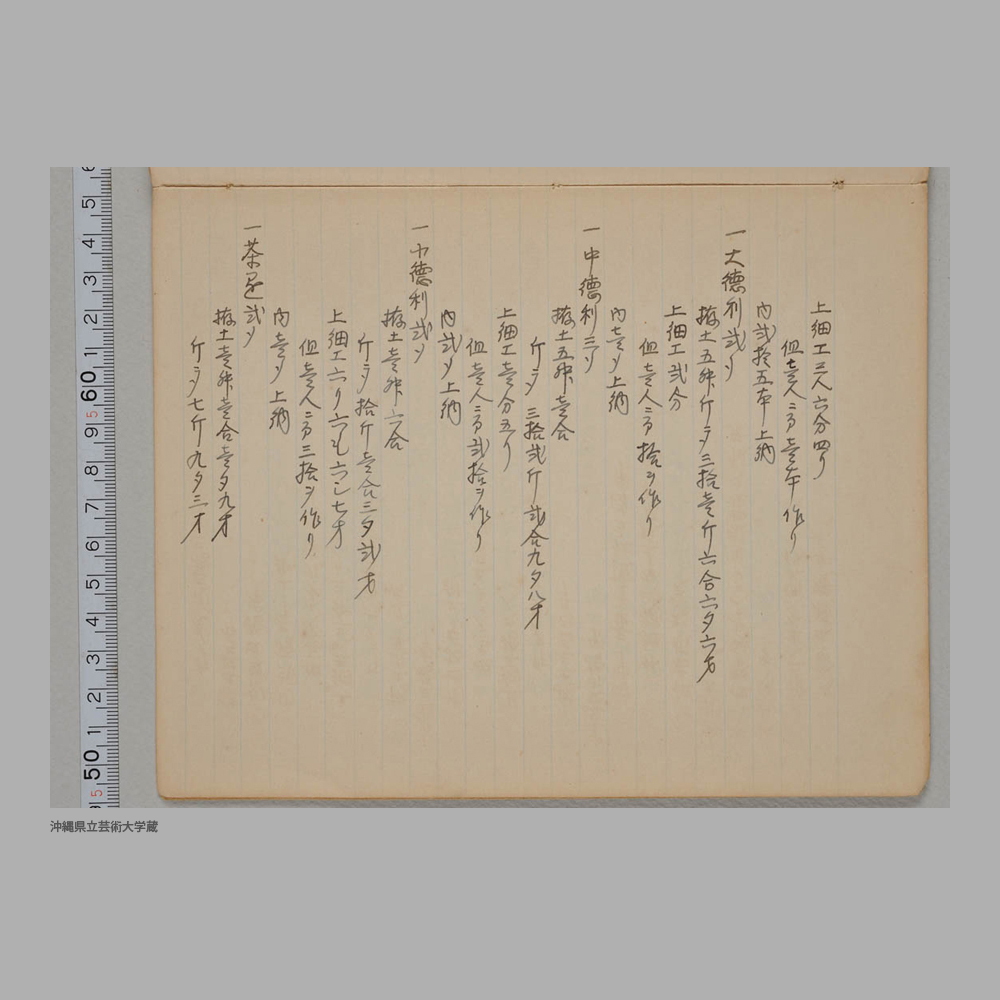 上細工三人六分四リ
但壱人ニ而壱本作り
内弐拾五本上納
一大徳利弐ツ
拵土五舛斤ニ〆三拾壱斤六合六夕六才
上細工弐分
但壱人ニ而拾ヲ作り
内壱ツ上納
一中徳利三ツ
拵土五舛壱合
斤ニ〆三拾弐斤弐合九夕八才
上細工壱分五り
但壱人ニ而弐拾ヲ作り
内弐ツ上納
一小徳利弐ツ
拵土壱舛六合
斤ニ〆拾斤壱合三夕弐才
上細工六り六毛六シ七才
但壱人ニ而三拾ヲ作り
内壱ツ上納
一茶 弐ツ
拵土壱舛壱合壱夕九才
斤ニ〆七斤九夕三才
60
50
沖縄県立芸術大学蔵